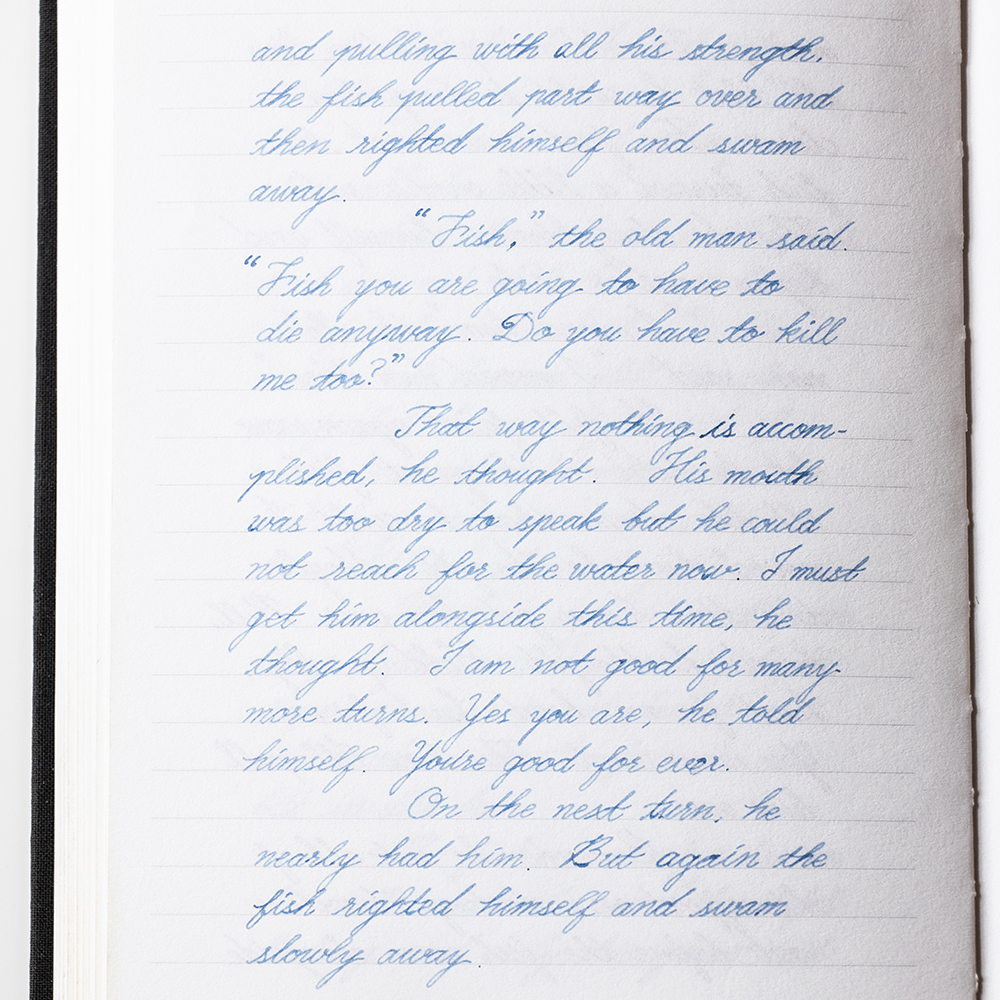 and pulling with all his strength,
the fish pulled part way over and
then righted himself and swam
away.
“Fish,” the old man said.
“Fish you are going to have to
die anyway. Do you have to kill
me too?”
That way nothing is accom-
plished, he thought. His mouth
was too dry to speak but he could
not reach for the water now. I must
get him alongside this time, he
thought. I am not good for many
more turns. Yes you are, he told
himself. You're good for ever.
On the next turn, he
nearly had him. But again the
fish righted himself and swam
slowly away.